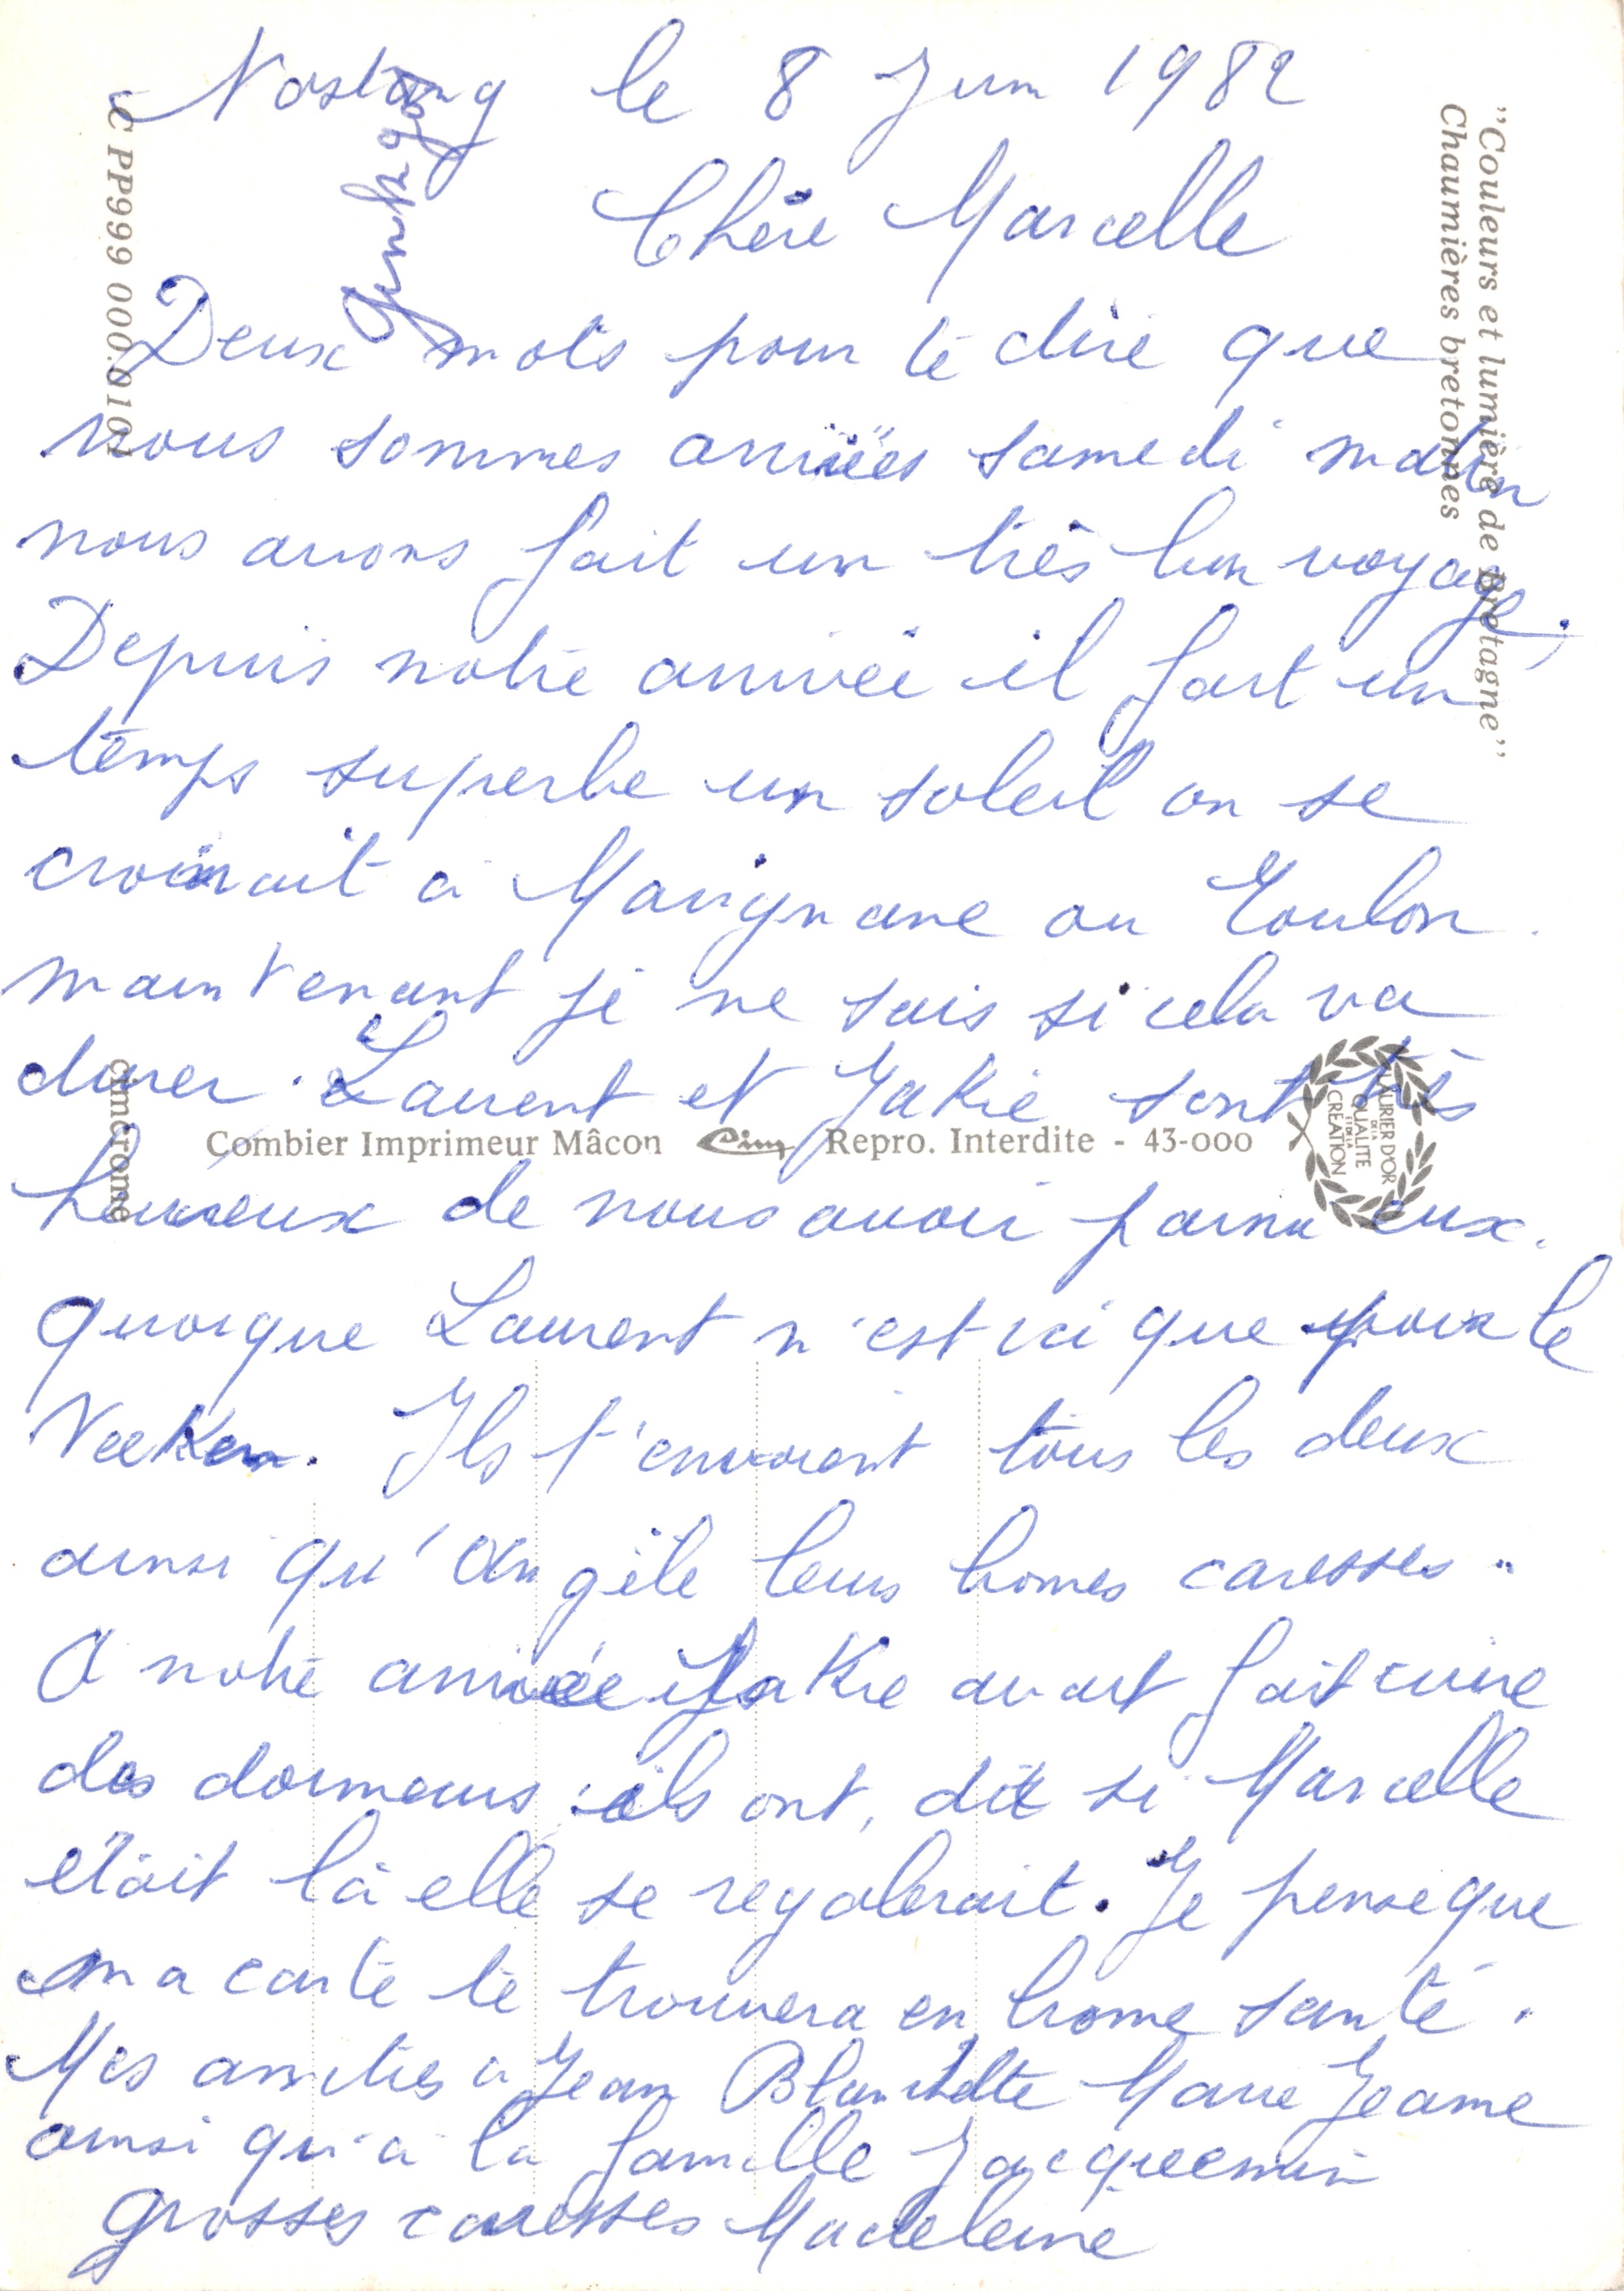 Nostang le 8 Juin 1982
Chère Marcelle
Deux mots pour te dire que
nous sommes arrivées samedi matin
nous avons fait un très bon voyage.
Depuis notre arrivée il fait un
temps superbe un soleil on se
croirait à Marignane ou Toulon.
maintenant je ne sais si cela va
durer. Laurent et Jakie sont très
heureux de nous avoir parmi eux.
quoique Laurent n'est ici que pour le
Veeken. Ils t'envoient tous les deux
ainsi qu'Angèle leurs bonnes caresses..
A notre arrivée Jakie avait fait cuire
des dormeurs ils ont, dit si Marcelle
etait là elle se regalerait. Je pense que
ma carte te trouvera en bonne santé.
Mes amitiés à Jean Blanchette Marie Jeanne
ainsi qu'à la famille Jacquemin
grosses caresses Madeleine
"Couleurs et lumière de Bretagne"
Chaumières bretonnes
C PP999 000.0101
cimcrome
Combier Imprimeur Mâcon Cim Repro. Interdite - 43-000
LAURIER D'OR
DE LA
QUALITE
ET DE LA
CREATION